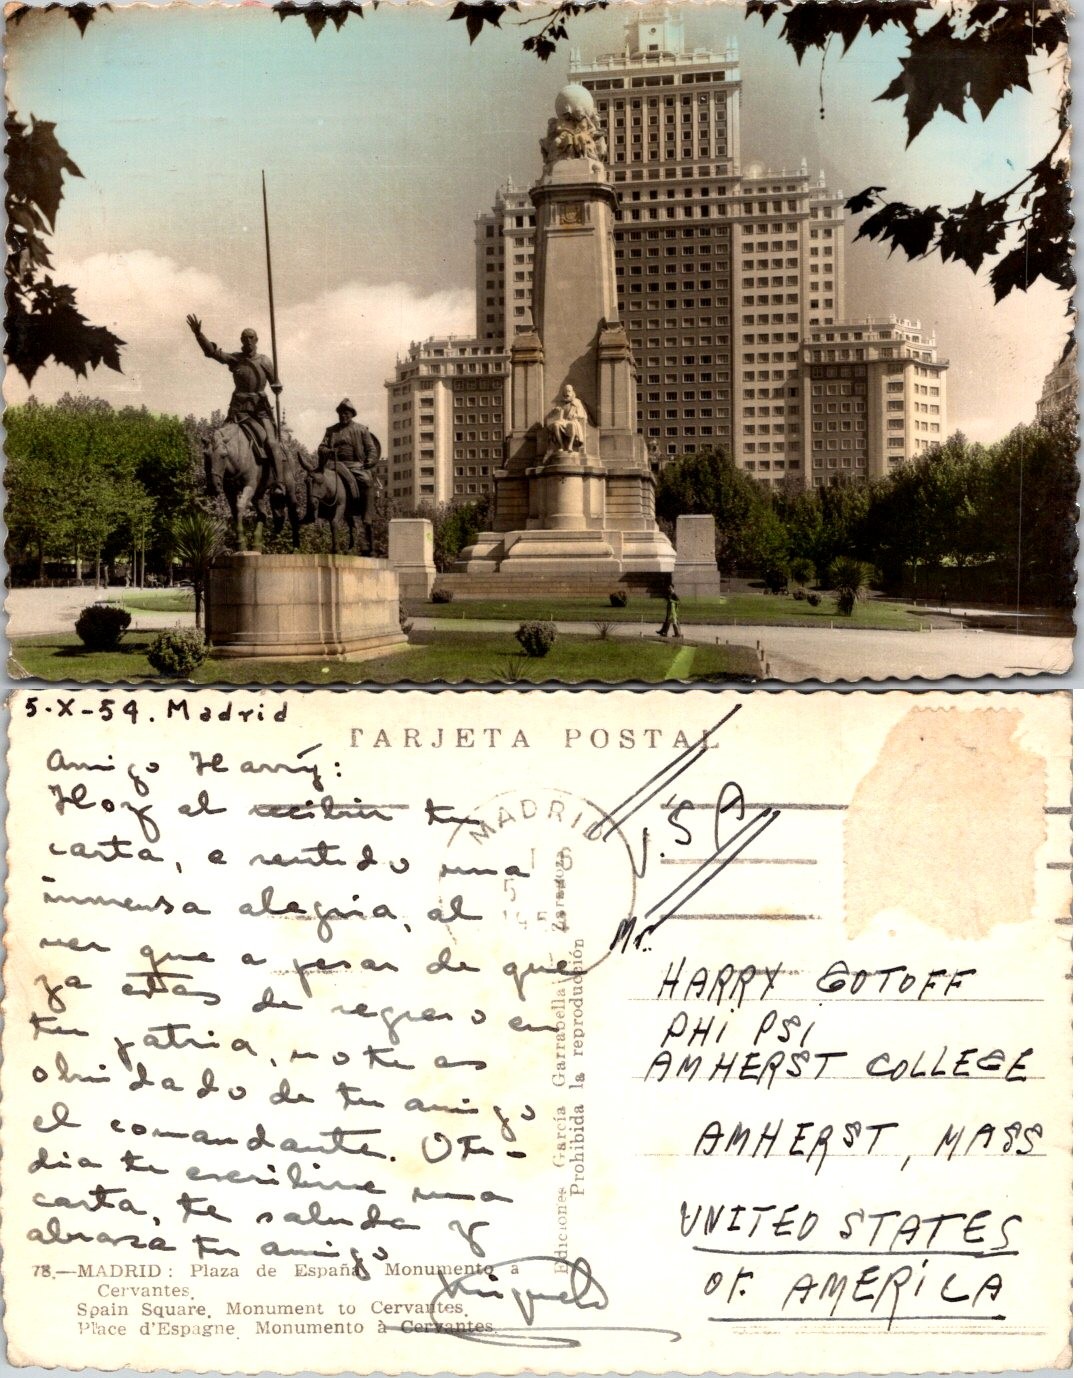 5-X-54. Madrid
TARJETA POSTAL
Amigo Harry:
Hoy al recibir tu
carta, e sentido una
inmensa alegria, al
ver que a pesar de que
ya estas de regreso en
tu patria, no te as
olvidado de tu amigo
el comandante. Otro
dia te escribire una
carta, te saluda y
abraza tu amigo
Miguel
78.—MADRID: Plaza de España, Monumento a
Cervantes.
Spain Square. Monument to Cervantes.
Place d'Espagne. Monumento à Cervantes.
MADRID
Ediciones García Garrabella Zaragoza
Prohibida la reproducción
U.S A
Mr.
HARRY GOTOFF
PHI PSI
AMHERST COLLEGE
AMHERST, MASS
UNITED STATES
OF AMERICA